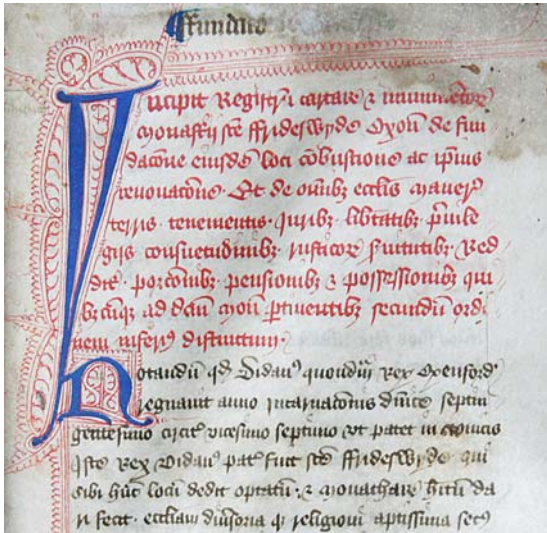 ffundacio
Incipit Registrū cartarꝝ & munimentorꝝ
Monasterii sc̄e ffrideswyde Oxon̄ de fun
dacōne eiusdē loci cōbustione ac ip̄ius
renouacōne. Et de omībꝫ ecclīs Maner
terris. tenementis. Juribꝫ. libtatibꝫ. p̄uile
giis consuetudinibꝫ. rusticoꝝ suitutibꝫ. Red
ditꝫ. porcōnibꝫ. pensionibꝫ & possessionibꝫ qui
bꝫcūqꝫ ad dcm̄ Mon̄ ptinentibꝫ secundū ordi
nem inferiꝰ distinctum
Notandū qd Didanꝰ quondm̄ Rex Oxenford
regnauit anno incarnacōnis dn̄ice septin
gentesimo circit̄ vicesimo septimo vt patet in cronicis
Iste Rex Didanꝰ pat̄ fuit sc̄e ffrideswyde qui
sibi hūc locū dedit optatū. & Monachaꝝ hītū da
ri fecit. eccliam religioni aptissima